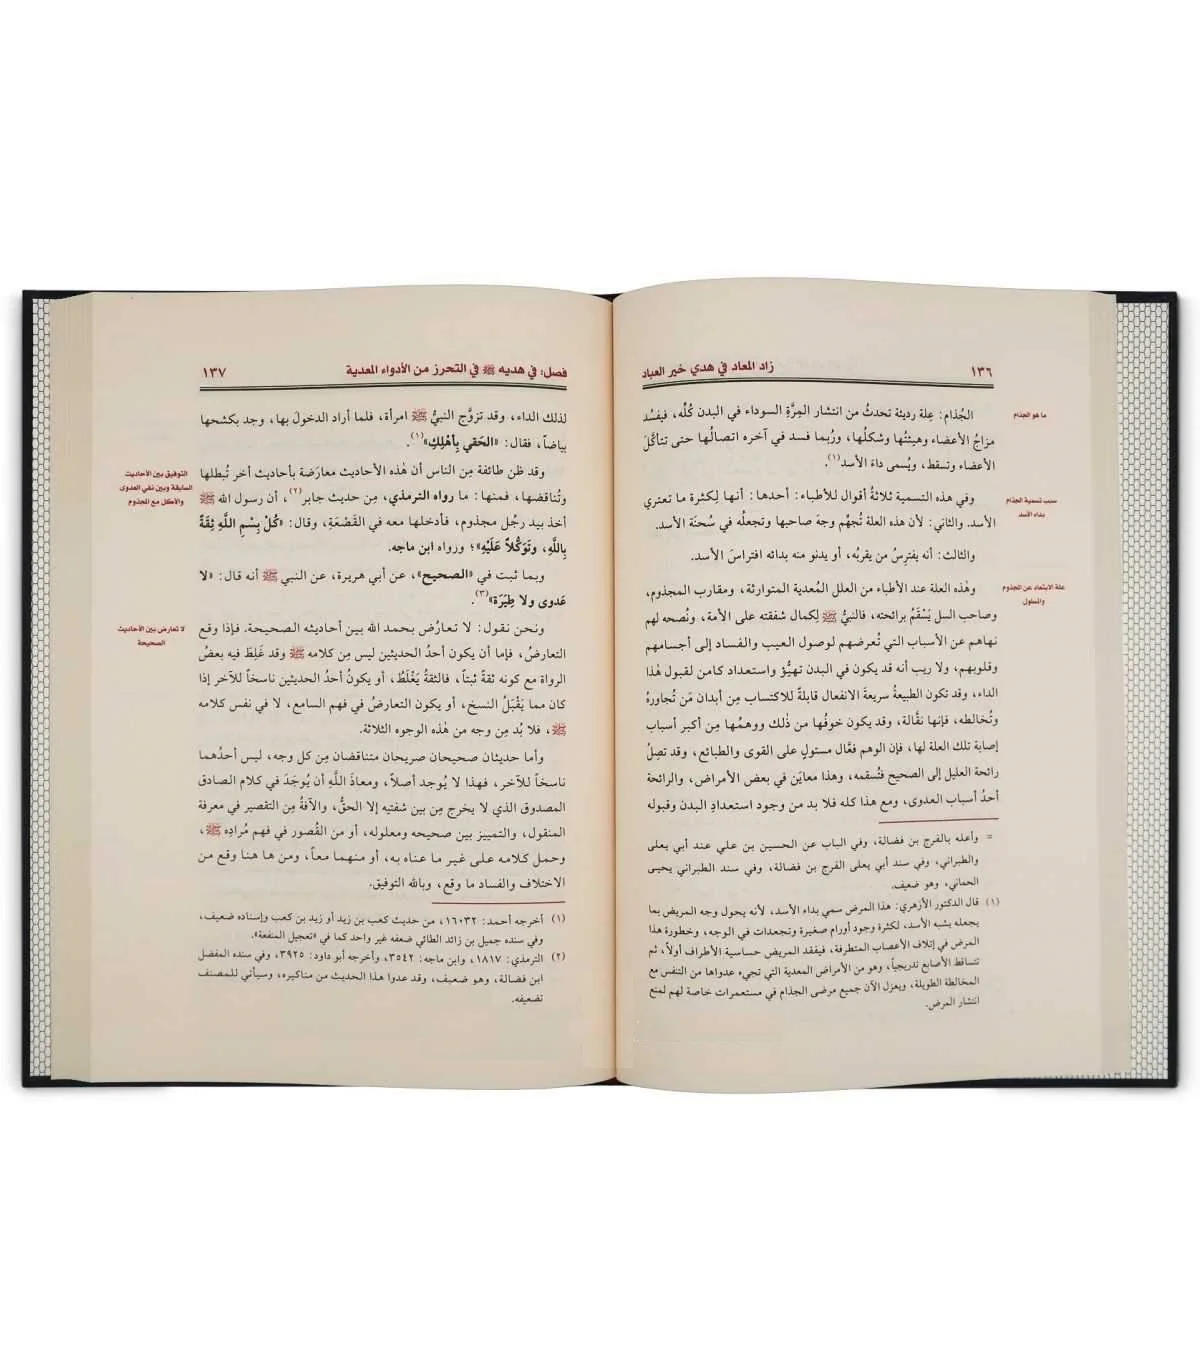 ١٣٦
زاد المعاد في هدي خير العباد
ما هو الجذام
الجُذام: عِلة رديئة تحدثُ من انتشار المِرَّةِ السوداء في البدن كُلِّه، فيفسُد
مزاجُ الأعضاء وهيئتُها وشكلُها، ورُبما فسد في آخره اتصالُها حتى تتأكَّلَ
الأعضاء وتسقط، ويُسمى داءَ الأسد(١).
سبب تسمية الجذام
بداء الأسد
وفي هذه التسمية ثلاثةُ أقوال للأطباء: أحدها: أنها لِكثرة ما تعتري
الأسد. والثاني: لأن هذه العلة تُجهِّم وجهَ صاحبها وتجعلُه في سُحنَة الأسد.
والثالث: أنه يفترِسُ من يقربُه، أو يدنو منه بدائه افتراسَ الأسد.
علة الابتعاد عن المجذوم
والمسلول
وهٰذه العلة عند الأطباء من العلل المُعدية المتوارثة، ومقارب المجذوم،
وصاحب السل يَسْقَمُ برائحته، فالنبيُّ ﷺ لِكمال شفقته على الأمة، ونُصحه لهم
نهاهم عن الأسباب التي تُعرضهم لوصول العيب والفساد إلى أجسامهم
وقلوبهم، ولا ريب أنه قد يكون في البدن تهيُّؤ واستعداد كامن لقبول هٰذا
الداء، وقد تكون الطبيعةُ سريعةَ الانفعال قابلةً للاكتساب مِن أبدان مَن تُجاورهُ
وتُخالطه، فإنها نقَّالة، وقد يكون خوفُها من ذٰلك ووهمُها مِن أكبر أسباب
إصابة تلك العلة لها، فإن الوهم فعَّال مستولٍ على القوى والطبائع، وقد تصِلُ
رائحة العليل إلى الصحيح فتُسقمه، وهذا معايَن في بعض الأمراض، والرائحة
أحدُ أسباب العدوى، ومع هذا كله فلا بد من وجود استعدادِ البدن وقبوله
= وأعله بالفرج بن فضالة، وفي الباب عن الحسين بن علي عند أبي يعلى
والطبراني، وفي سند أبي يعلى الفرج بن فضالة، وفي سند الطبراني يحيى
الحماني، وهو ضعيف.
(١) قال الدكتور الأزهري: هذا المرض سمي بداء الأسد، لأنه يحول وجه المريض بما
يجعله يشبه الأسد، لكثرة وجود أورام صغيرة وتجعدات في الوجه، وخطورة هذا
المرض في إتلاف الأعصاب المتطرفة، فيفقد المريض حساسية الأطراف أولاً، ثم
تتساقط الأصابع تدريجياً، وهو من الأمراض المعدية التي تجيء عدواها من التنفس مع
المخالطة الطويلة، ويعزل الآن جميع مرضى الجذام في مستعمرات خاصة لهم لمنع
انتشار المرض.
فصل: في هديه ﷺ في التحرز من الأدواء المعدية
١٣٧
لذلك الداء، وقد تزوَّج النبيُّ ﷺ امرأة، فلما أراد الدخولَ بها، وجد بكشحها
بياضاً، فقال: «الحَقي بِأَهْلِكِ»(١).
التوفيق بين الأحاديث
السابقة وبين نفي العدوى
والأكل مع المجذوم
وقد ظن طائفة مِن الناس أن هٰذه الأحاديث معارَضة بأحاديث أخر تُبطلها
وتُناقضها، فمنها: ما رواه الترمذي، مِن حديث جابر(٢)، أن رسول الله ﷺ
أخذ بيد رجُل مجذوم، فأدخلها معه في القَصْعَةِ، وقال: «كُلْ بِسْمِ اللَّهِ ثِقَةً
بِاللَّهِ، وتَوَكُّلاً عَلَيْهِ»؛ ورواه ابن ماجه.
وبما ثبت في «الصحيح»، عن أبي هريرة، عن النبي ﷺ أنه قال: «لا
عَدوى ولا طِيَرَة»(٣).
لا تعارض بين الأحاديث
الصحيحة
ونحن نقول: لا تعارُض بحمد الله بين أحاديثه الصحيحة. فإذا وقع
التعارضُ، فإما أن يكون أحدُ الحديثين ليس مِن كلامه ﷺ وقد غَلِطَ فيه بعضُ
الرواة مع كونه ثقةً ثَبتاً، فالثقةُ يَغْلَطُ، أو يكونُ أحدُ الحديثين ناسخاً للآخر إذا
كان مما يَقْبَلُ النسخ، أو يكون التعارضُ في فهم السامع، لا في نفس كلامه
ﷺ، فلا بُد مِن وجه من هٰذه الوجوه الثلاثة.
وأما حديثان صحيحان صريحان متناقضان مِن كل وجه، ليس أحدُهما
ناسخاً للآخر، فهذا لا يُوجد أصلاً، ومعاذَ اللَّهِ أن يُوجَدَ في كلام الصادق
المصدوق الذي لا يخرج مِن بين شفتيه إلا الحقُّ، والآفةُ مِن التقصير في معرفة
المنقول، والتمييز بين صحيحه ومعلوله، أو من القُصور في فهم مُرادِه ﷺ،
وحمل كلامه على غير ما عناه به، أو منهما معاً، ومن ها هنا وقع من
الاختلاف والفساد ما وقع، وبالله التوفيق.
(١) أخرجه أحمد: ١٦٠٣٢، من حديث كعب بن زيد أو زيد بن كعب وإسناده ضعيف،
وفي سنده جميل بن زائد الطائي ضعفه غير واحد كما في «تعجيل المنفعة».
(٢) الترمذي: ١٨١٧، وابن ماجه: ٣٥٤٢، وأخرجه أبو داود: ٣٩٢٥، وفي سنده المفضل
ابن فضالة، وهو ضعيف، وقد عدوا هذا الحديث من مناكيره، وسيأتي للمصنف
تضعيفه.